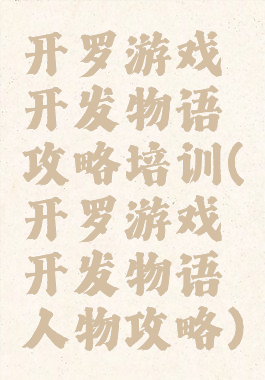 开罗游戏
开发物语
攻略培训(
开罗游戏
开发物语
人物攻略)